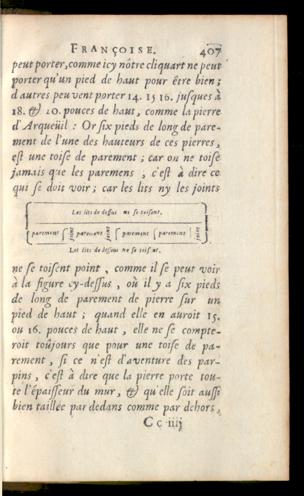 FRANÇOISE. 407
peut porter, comme icy nôtre cliquart ne peut
porter qu'un pied de haut pour être bien;
d'autres peuvent porter 14. 15 16. jusques à
18. & 20. pouces de haut, comme la pierre
d'Arqueüil: Or six pieds de long de pare-
ment de l'une des hauteurs de ces pierres,
est une toise de parement; car on ne toise
jamais que les paremens, c'est à dire ce
qui se doit voir; car les lits ny les joints
Les lits de dessus ne se toisent.
parement joint parement joint parement parement joint
Les lits de dessous ne se toisent.
ne se toisent point, comme il se peut voir
à la figure cy-dessus, où il y a six pieds
de long de parement de pierre sur un
pied de haut; quand elle en auroit 15.
ou 16. pouces de haut, elle ne se compte-
roit toûjours que pour une toise de pa-
rement, si ce n'est d'aventure des par-
pins, c'est à dire que la pierre porte tou-
te l'épaisseur du mur, & qu'elle soit aussi
bien taillée par dedans comme par dehors,
Cc iiij